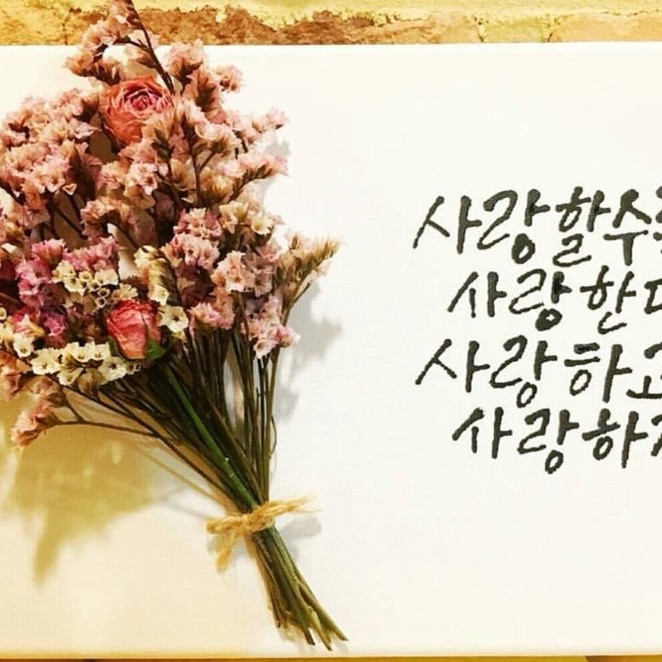 사랑할수
사랑한
사랑하고
사랑하